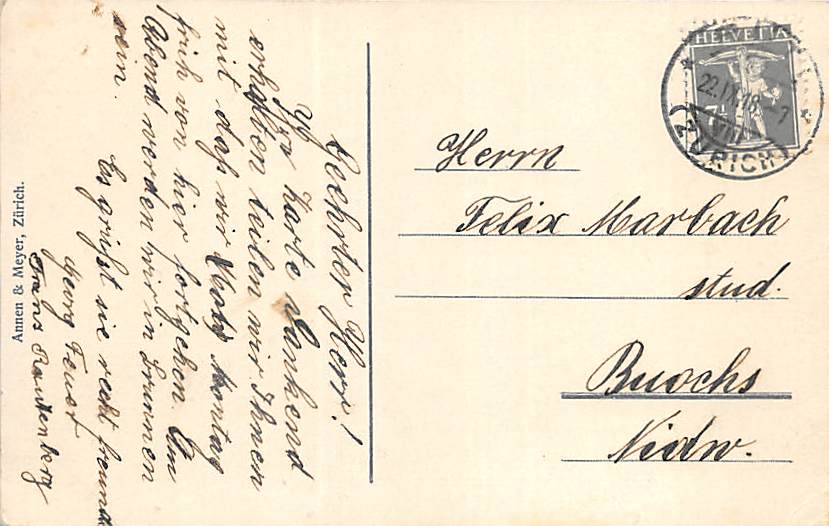 Geehrter Herr!
Ihre Karte dankend
erhalten teilen wir Ihnen
mit daß wir Montag
früh von hier fortgehen. Am
Abend werden wir in Brunnen
sein.
Es grüßt sie recht freund
Georg Feust
Franz Rautenberg
Annen & Meyer, Zürich.
HELVETIA
22.IX.18.-7
ZÜRICH
Herrn
Felix Marbach
stud.
Buochs
Nidw.